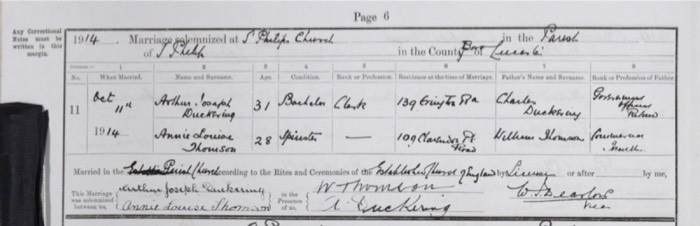 Page 6
Any Correctional
Notes must be
written in this
margin.
1914. Marriage solemnized at St Philips Church in the Parish
of St Philip in the County Boro of Leicester
1 2 3 4 5 6 7 8
No. When Married. Name and Surname. Age. Condition. Rank or Profession. Residence at the time of Marriage. Father's Name and Surname. Rank or Profession of Father.
11 Oct 11th Arthur Joseph Duckering 31 Bachelor Clark 139 Charles Duckering Officer Retired
1914 Annie Louise Thomson 28 Spinster — 109 Clarendon Pk Road William Thomson Commercial
Married in the Parish Church according to the Rites and Ceremonies of the Established Church of England by Licence or after by me,
This Marriage was solemnized between us, Arthur Joseph Duckering in the Presence of us, W Thomson
Annie Louise Thomson A Duckering